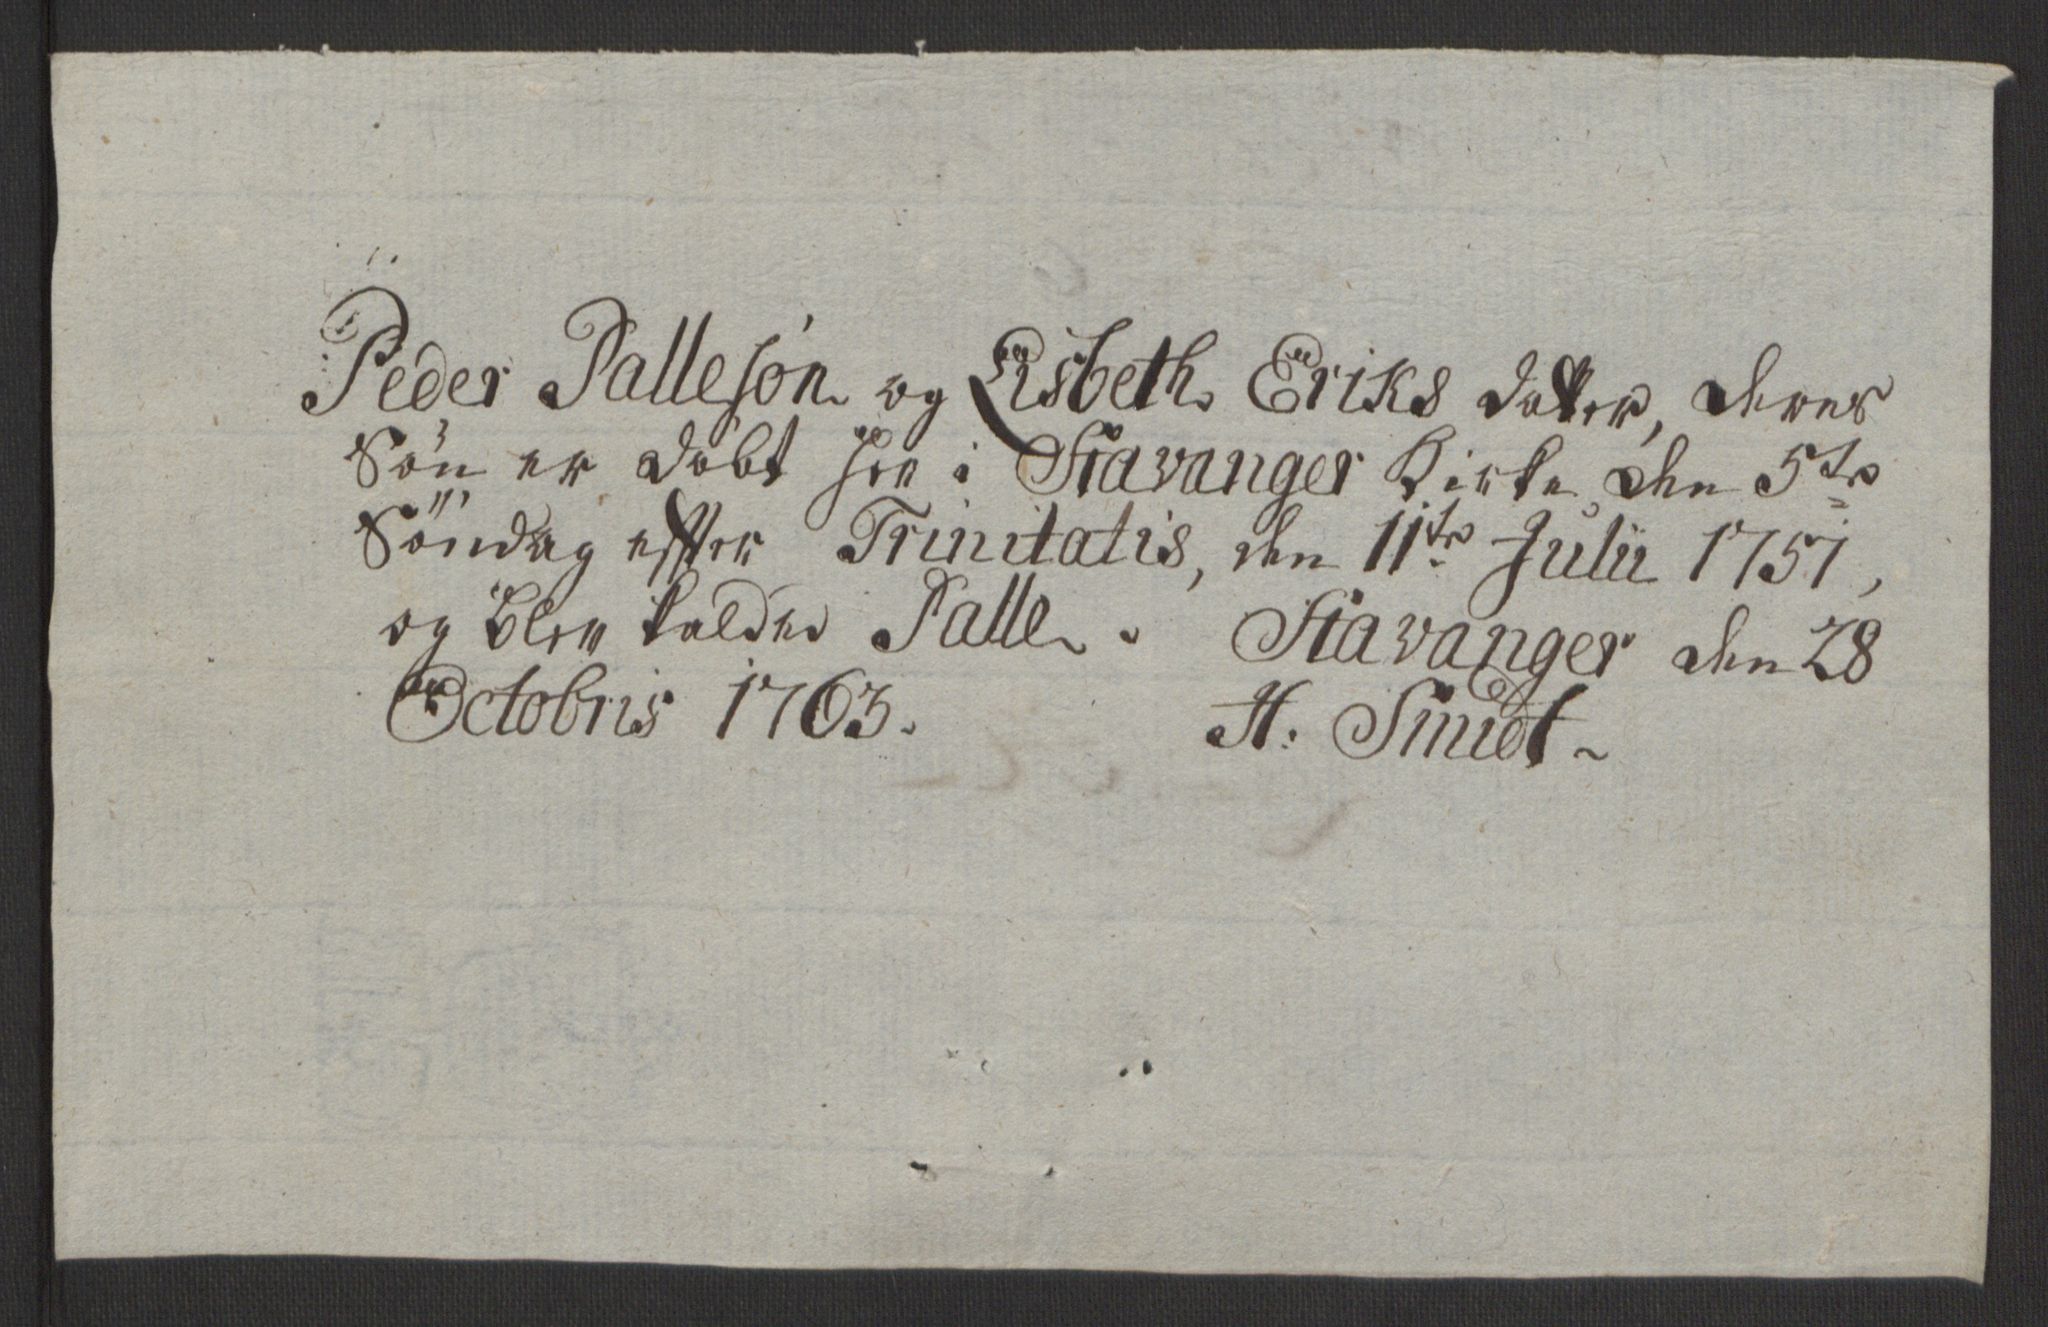 Peder Pallesøn og Lisbeth Eriks datter, deres
Søn er døbt her i Stavanger Kirke den 5te
Søndag effter Trinitatis, den 11te Julii 1751,
og blev kaldet Palle. Stavanger den 28
Octobris 1763. H. Smidt